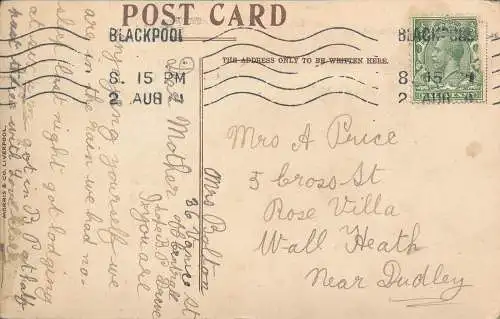 POST CARD
BLACKPOOL
8. 15 PM
2 AUG
BLACKPOOL
8 15
2 AUG
THE ADDRESS ONLY TO BE WRITTEN HERE.
Mrs A Price
5 Cross St
Rose Villa
Wall Heath
Near Dudley
Mrs Bolton
36 Vance St
of Central
Dear Mother
if you are
enjoying yourself we
are in the rain we had no
sleep last night got lodging
at six got in B. P at half
past